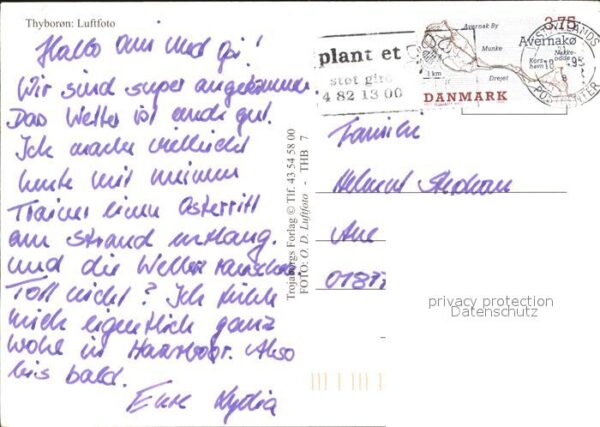 Thyborøn: Luftfoto
Hallo Omi und Opi!
Wir sind super angekommen.
Das Wetter ist auch gut.
Ich mache vielleicht
heute mit meinem
Trainer einen Osterritt
am Strand entlang.
und die Wellen rauschen.
Toll nicht? Ich fühle
mich eigentlich ganz
wohl in Harboør. Also
bis bald.
Eure Lydia
Trojaborgs Forlag © Tlf. 43 54 58 00
FOTO: O. D. Luftfoto - THB 7
plant et
støt giro
4 82 13 00
3.75
Avernak By
Avernakø
Munke
Kors-
havn
Nakke-
odde
Drejet
1 km
DANMARK
ØSTJYLLANDS
POSTCENTER
Familie
Helmut
Aue
privacy protection
Datenschutz